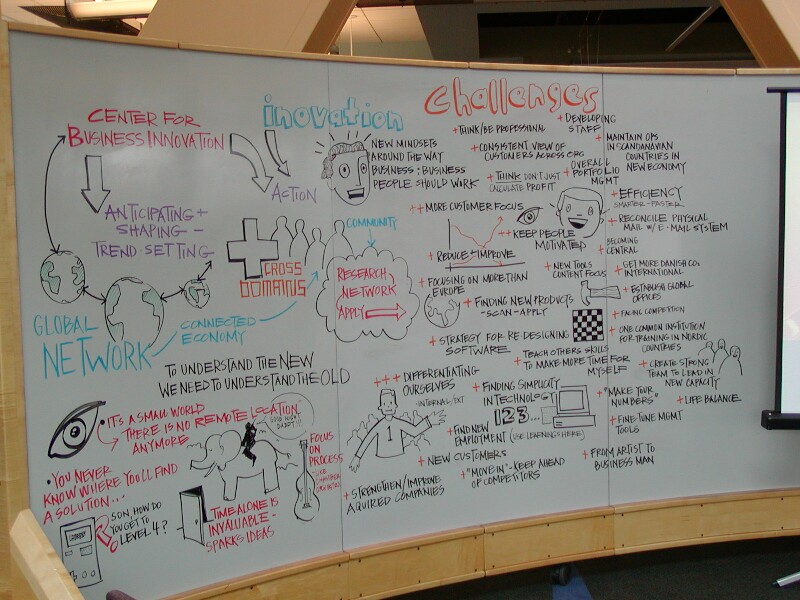 CENTER FOR
BUSINESS INNOVATION
ANTICIPATING +
SHAPING -
TREND-SETTING
GLOBAL
NETWORK
CONNECTED
ECONOMY
inovation
ACTION
NEW MINDSETS
AROUND THE WAY
BUSINESS; BUSINESS
PEOPLE SHOULD WORK
CROSS
COMMUNITY
RESEARCH
NETWORK
APPLY
TO UNDERSTAND THE NEW
WE NEED TO UNDERSTAND THE OLD
• IT'S A SMALL WORLD
THERE IS NO REMOTE LOCATION"
ANYMORE
• YOU NEVER
KNOW WHERE YOU'LL FIND
A SOLUTION...
SON, HOW DO
YOU GET TO
LEVEL 4?
TIME ALONE IS
INVALUABLE -
SPARKS IDEAS
FOCUS
ON
PROCESS
challenges
+ THINK/BE PROFESSIONAL
+ CONSISTENT VIEW OF
CUSTOMERS ACROSS ORG
+ THINK DON'T JUST
CALCULATE PROFIT
+ MORE CUSTOMER FOCUS
+ KEEP PEOPLE
MOTIVATED
+ REDUCE + IMPROVE
+ FOCUSING ON MORE THAN
EUROPE
+ NEW TOOLS
CONTENT FOCUS
+ FINDING NEW PRODUCTS
- SCAN - APPLY
+ STRATEGY FOR RE-DESIGNING
SOFTWARE
+ TEACH OTHERS SKILLS
TO MAKE MORE TIME FOR
MYSELF
+++ DIFFERENTIATING
OURSELVES
- INTERNAL/EXT
1
+ FINDING SIMPLICITY
IN TECHNOLOGY
123...
+ FIND NEW
EMPLOYMENT (USE LEARNINGS HERE)
+ NEW CUSTOMERS
+ "MOVE IN" - KEEP AHEAD
OF COMPETITORS
+ STRENGTHEN/IMPROVE
AQUIRED COMPANIES
+ DEVELOPING
STAFF
+ OVERALL
PORTFOLIO
MGMT
+ MAINTAIN OPS
IN SCANDANAVIAN
COUNTRIES IN
NEW ECONOMY
+ EFFICIENCY
SMARTER - FASTER
+ RECONCILE PHYSICAL
MAIL W/ E-MAIL SYSTEM
+ BECOMING
CENTRAL
+ GET MORE DANISH CO's
INTERNATIONAL
+ ESTABLISH GLOBAL
OFFICES
+ FACING COMPETITION
+ ONE COMMON INSTITUTION
FOR TRAINING IN NORDIC
COUNTRIES
+ CREATE STRONG
TEAM TO LEAD IN
NEW CAPACITY
+ "MAKE YOUR
NUMBERS"
+ LIFE BALANCE
+ FINE-TUNE MGMT
TOOLS
+ FROM ARTIST TO
BUSINESS MAN